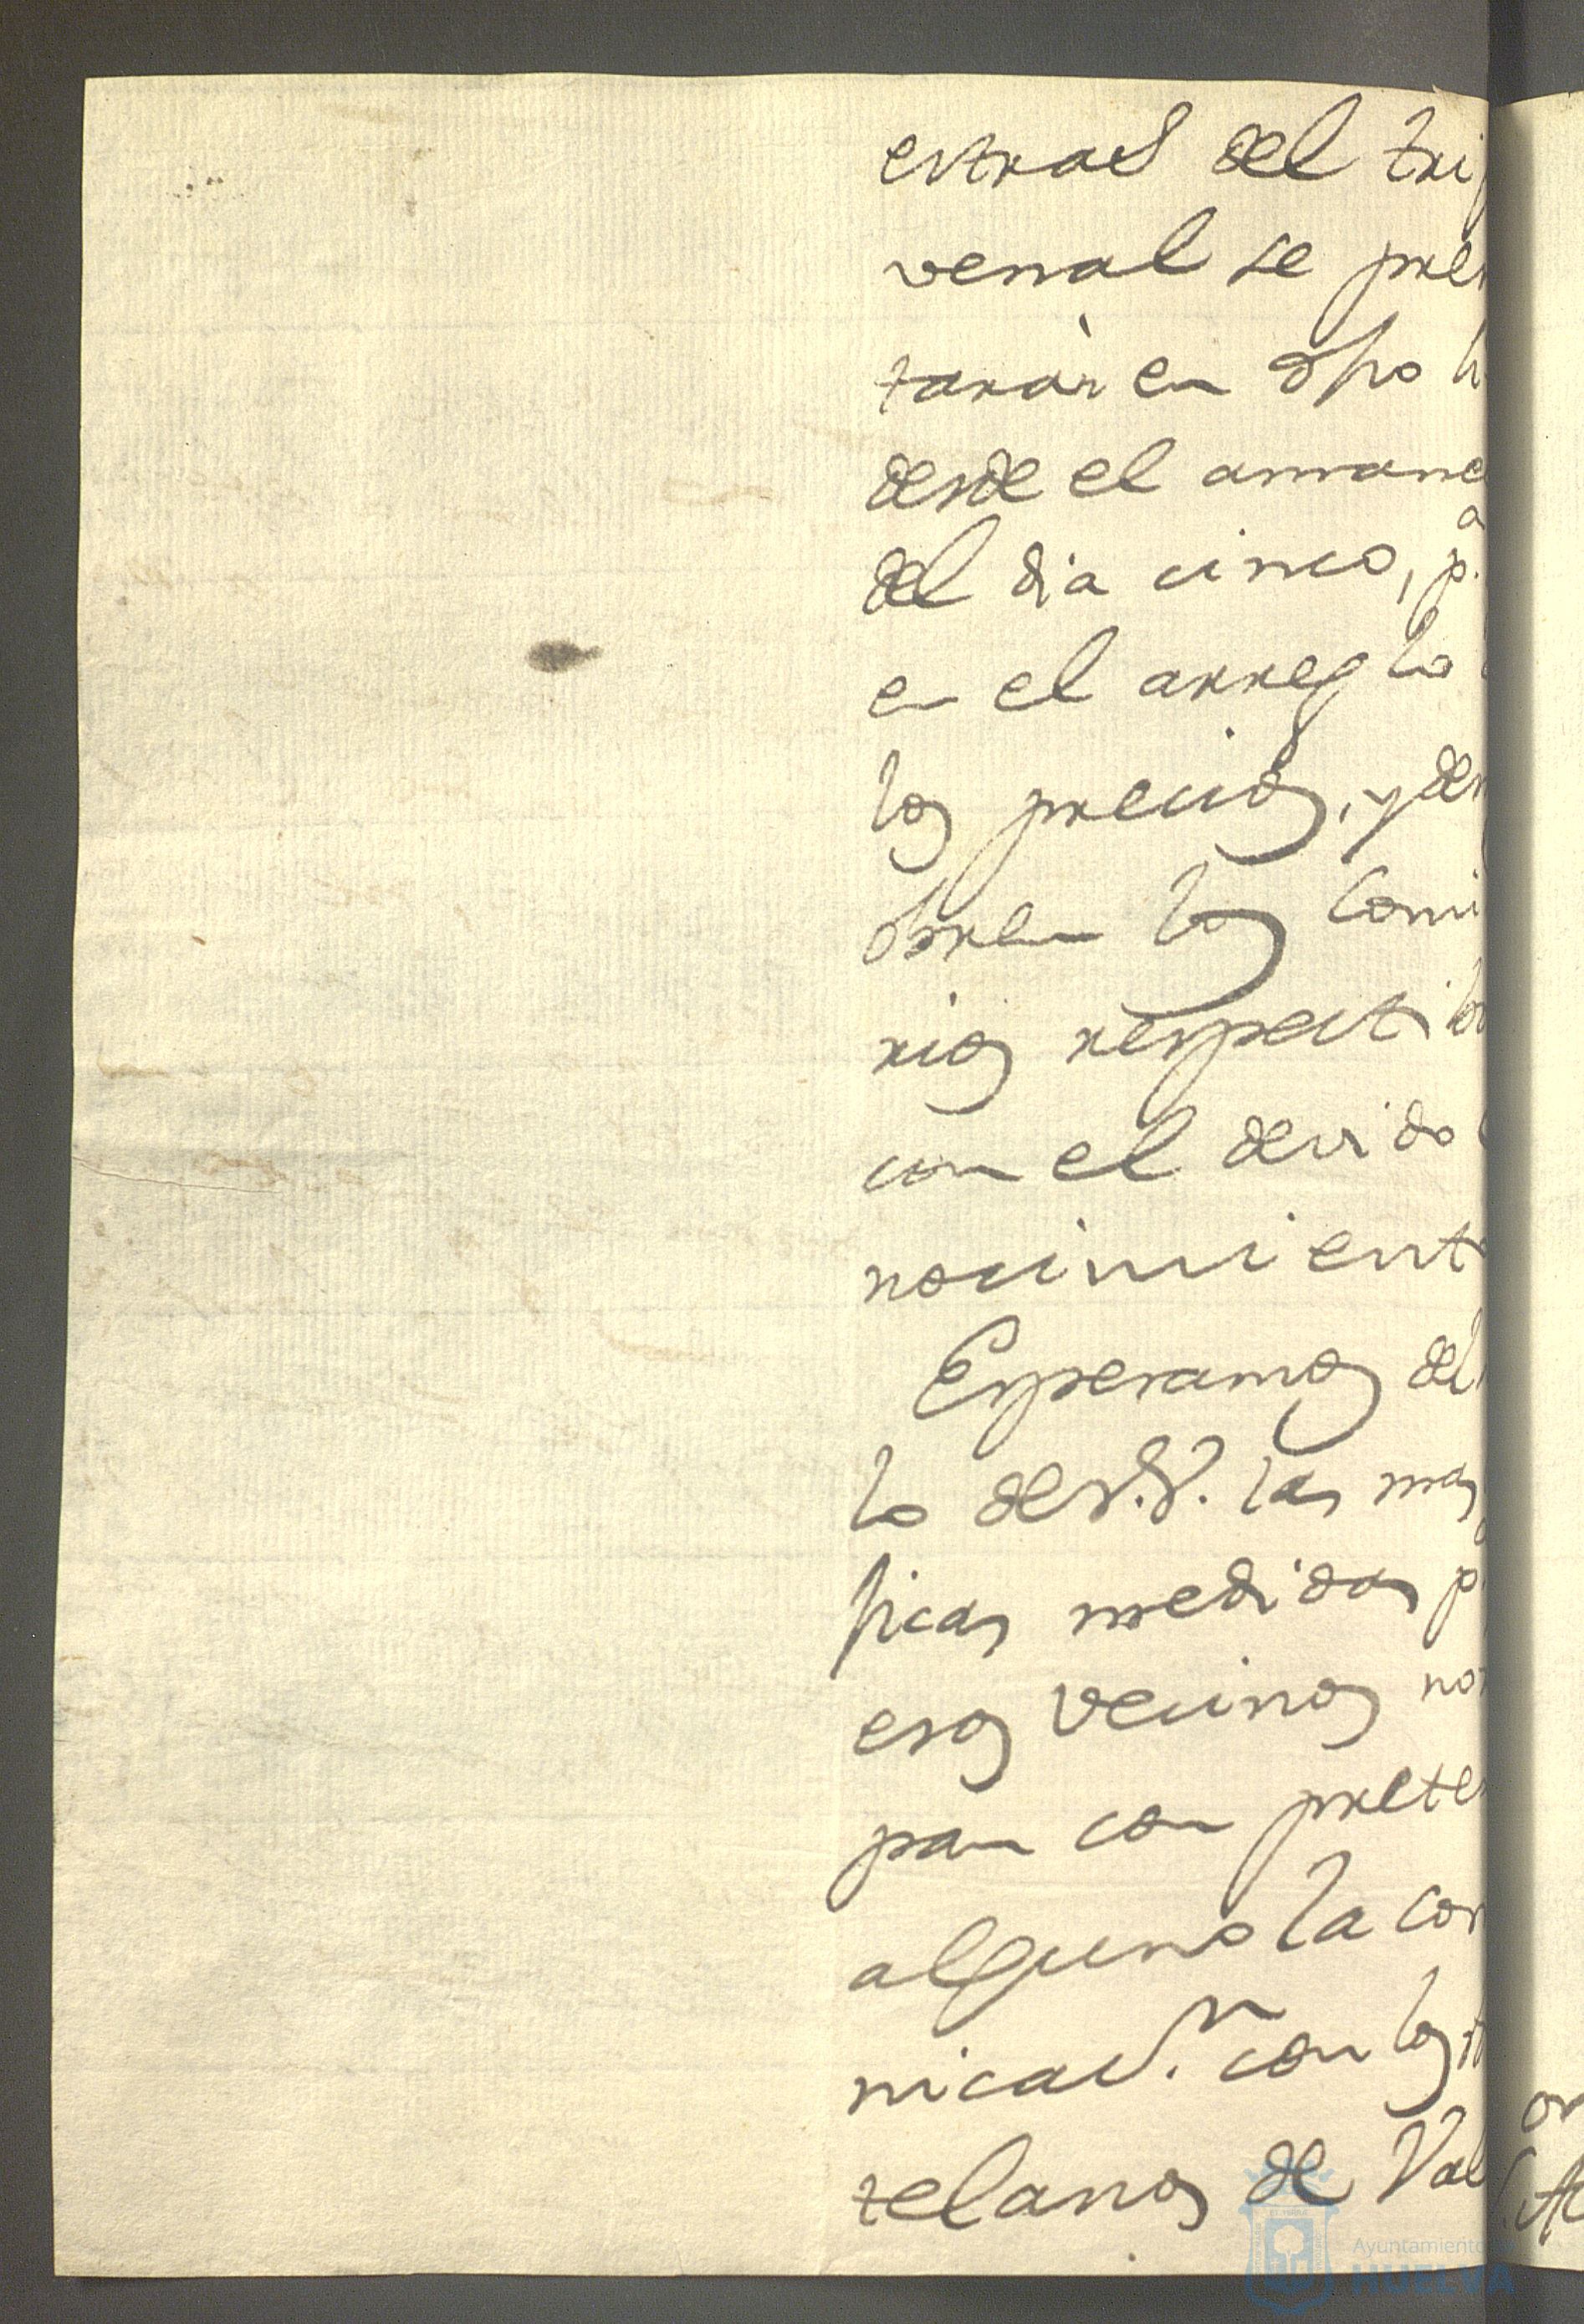 estras del tri
venal se pre
taràn en dho
desde el amane
del dia cinco, p.a
en el arreglo
los precios, y de
obren los Comi
rios respectibo
con el devido
nocimiento
Esperamos del
lo de V.S. las mas
ficas medidas p
esos vecinos no
pan con prete
alguno la co
nicac.n con los
telanos de Val
Ayuntamiento
HUELVA